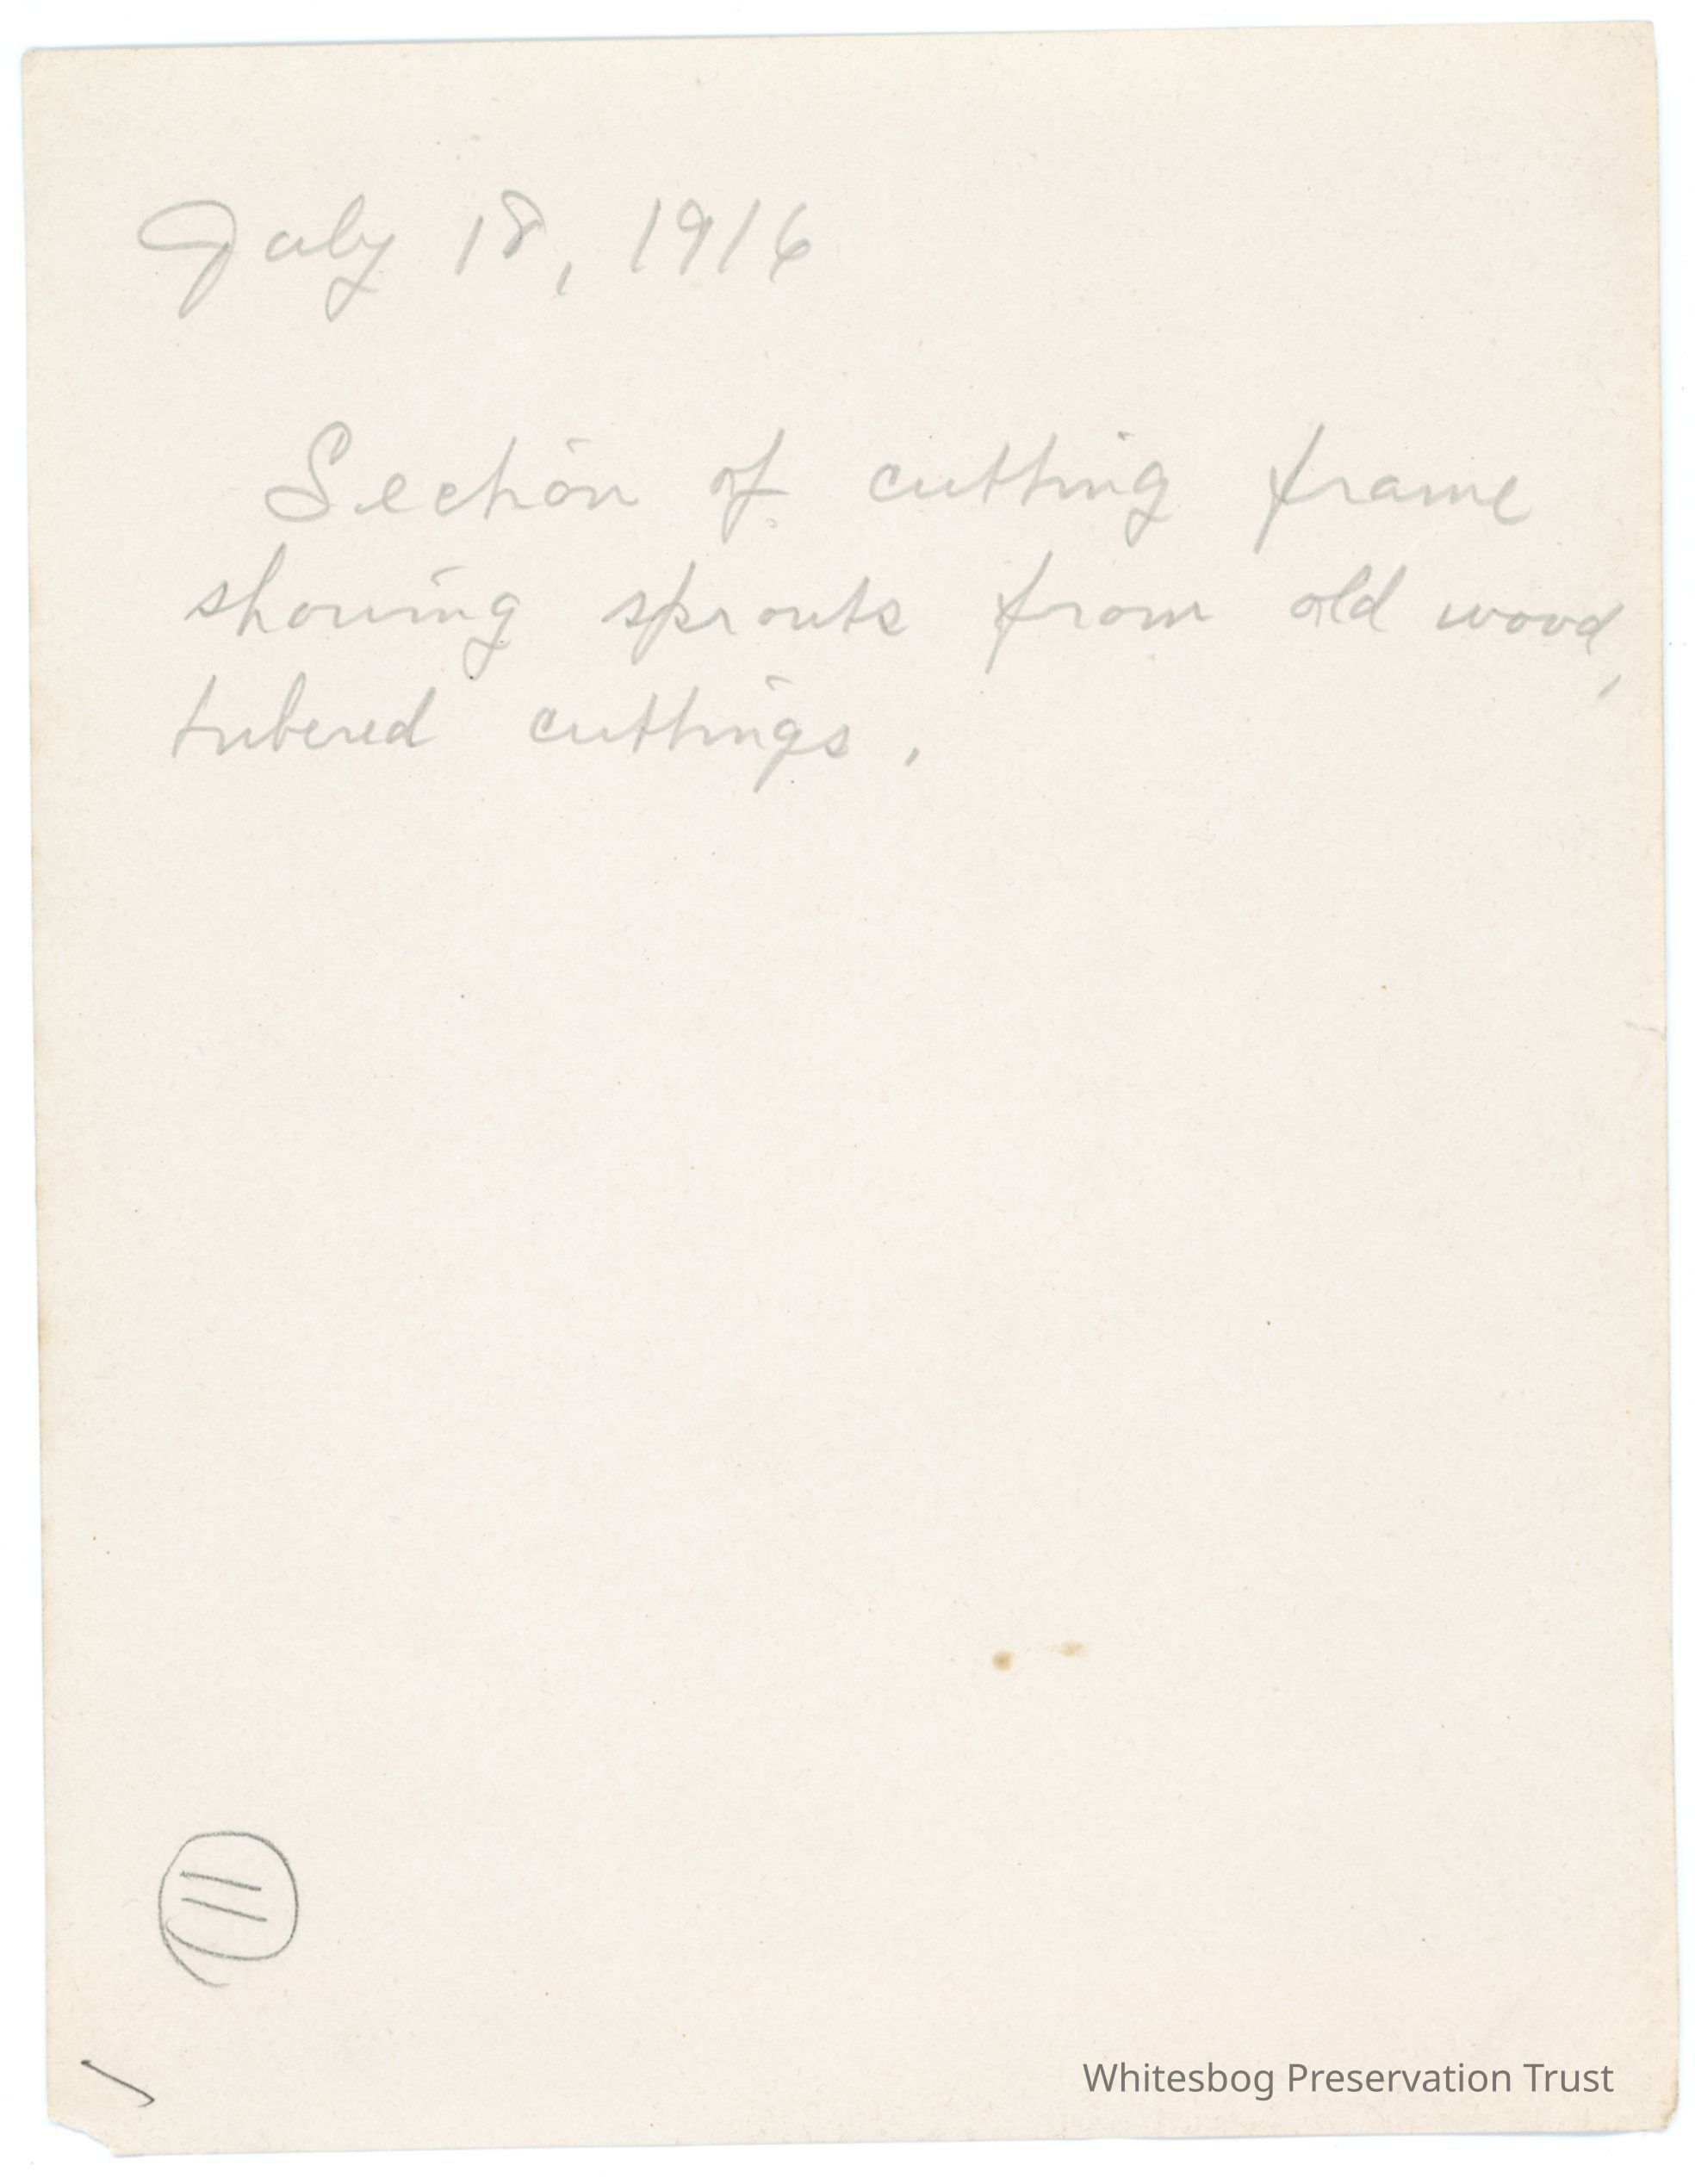 July 18, 1916
Section of cutting frame
showing sprouts from old wood,
tubered cuttings.
11
Whitesbog Preservation Trust